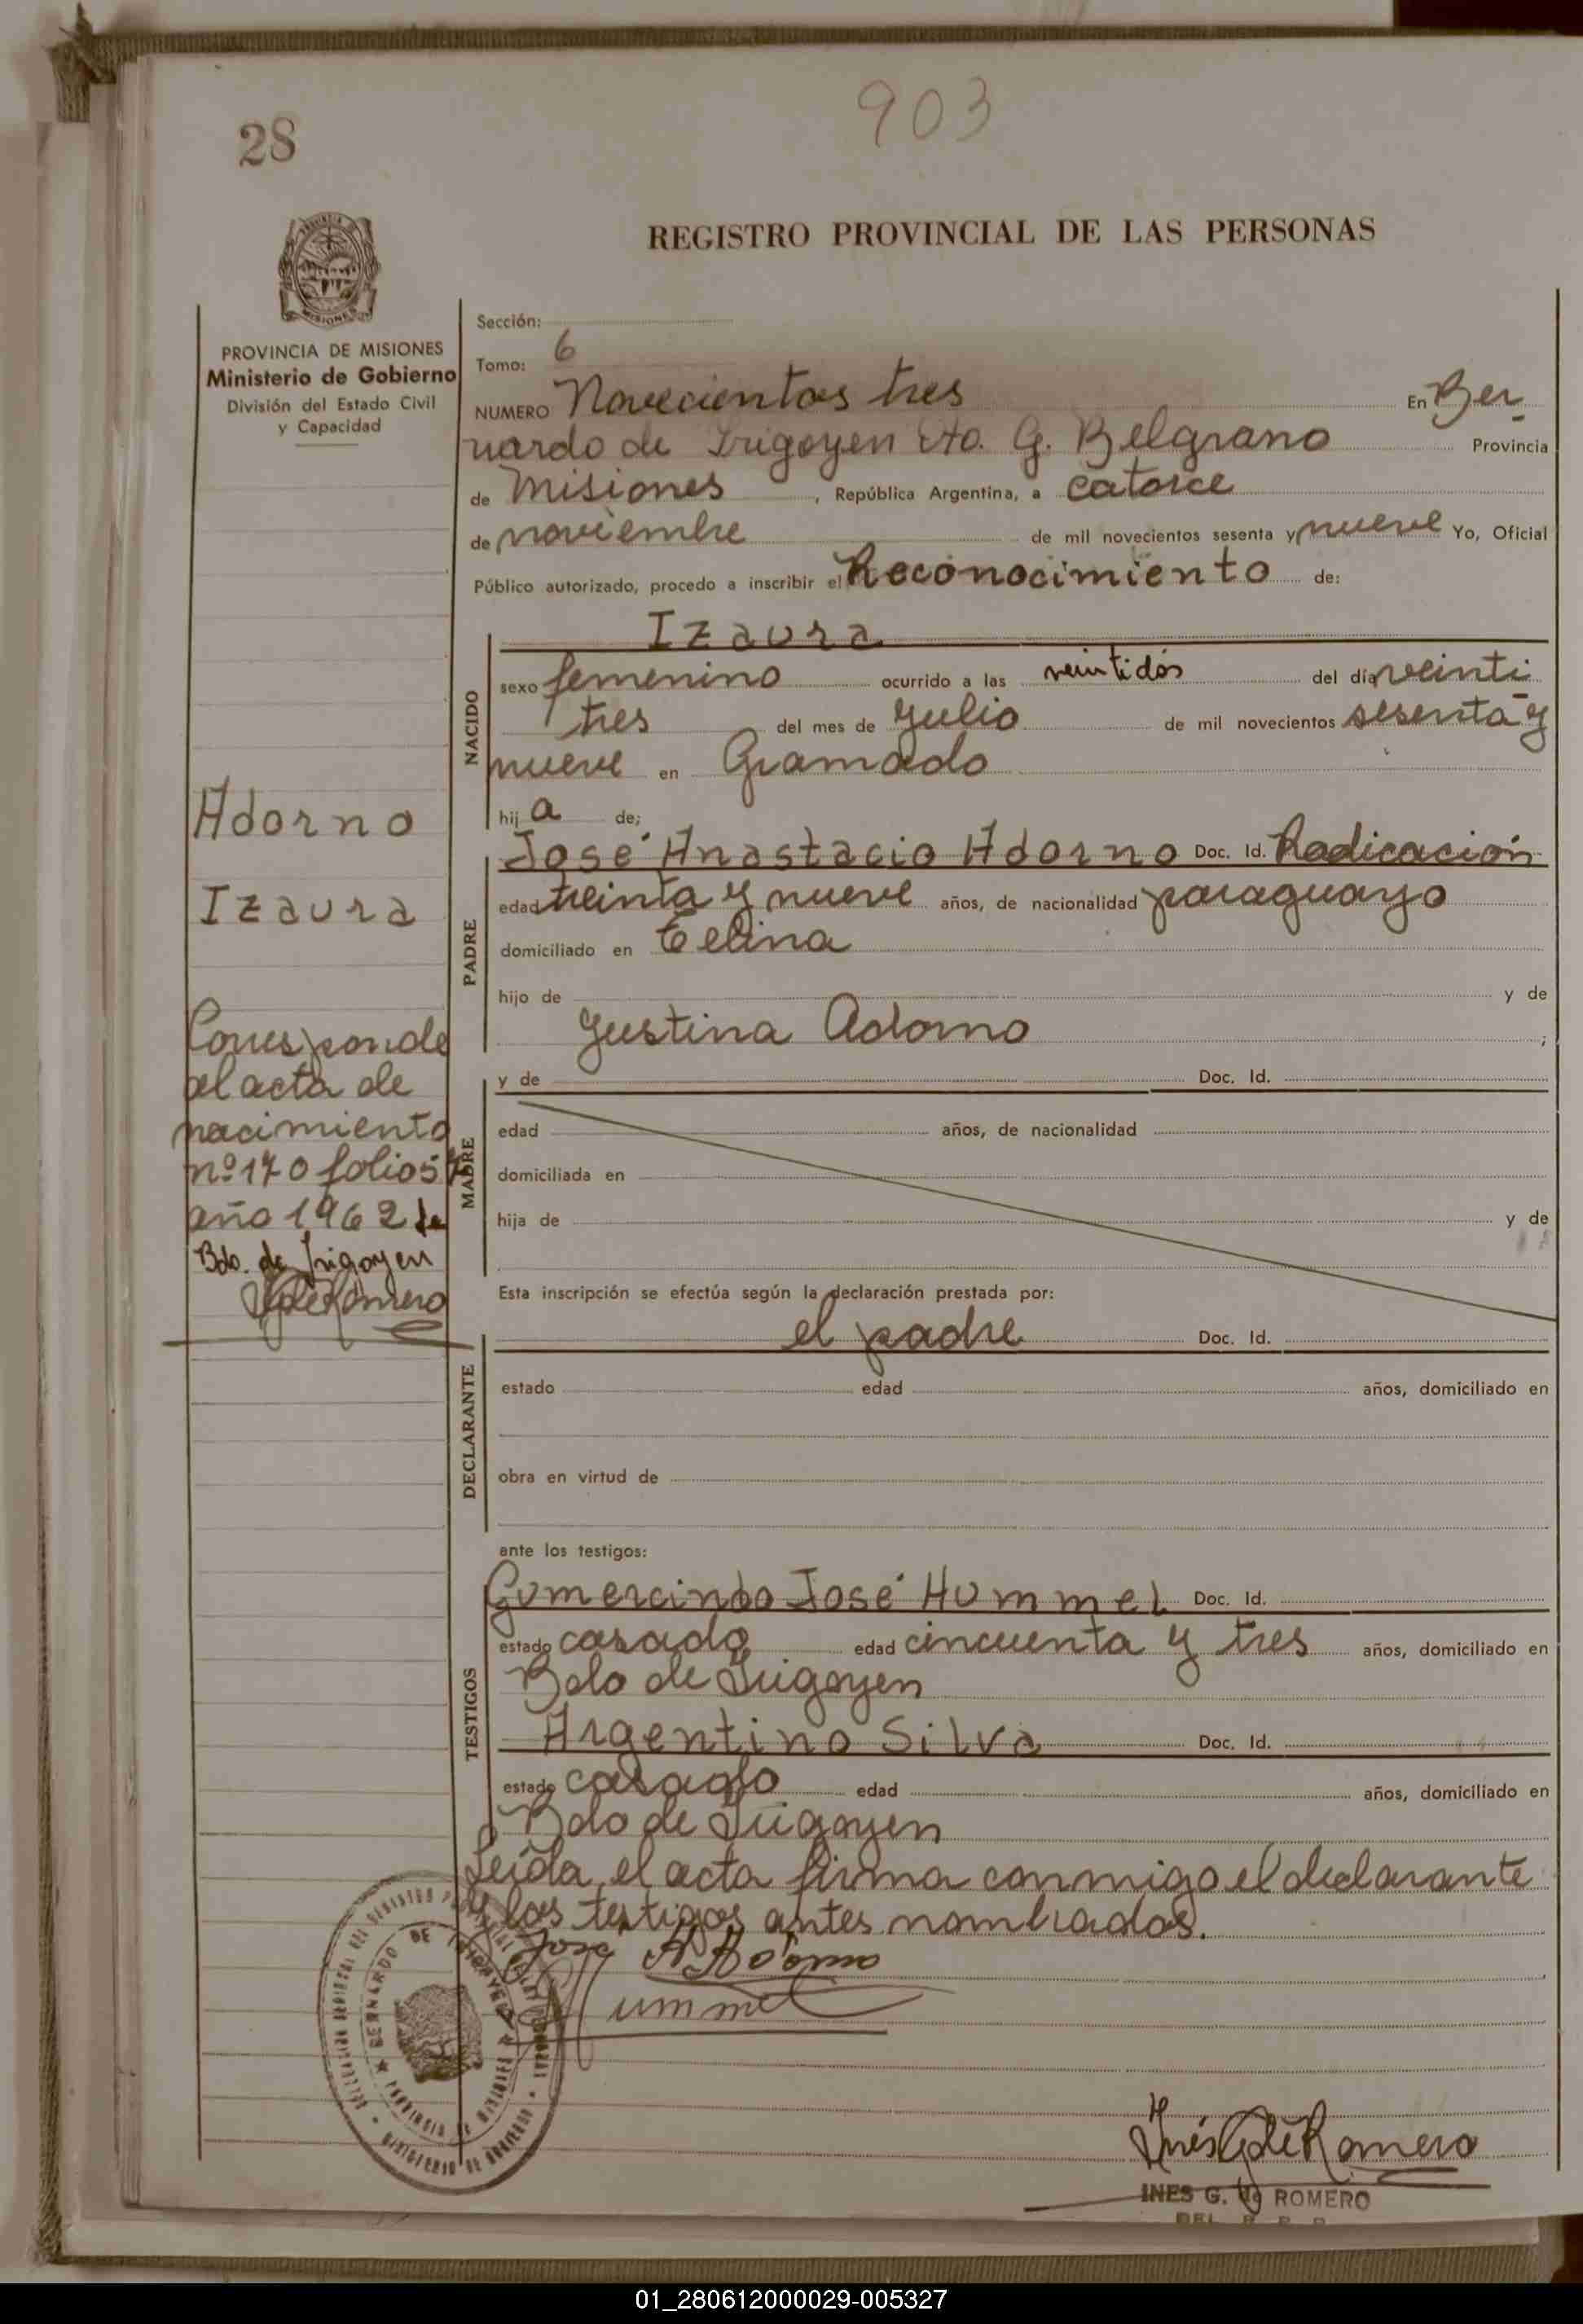 903
28
REGISTRO PROVINCIAL DE LAS PERSONAS
MISIONES
PROVINCIA DE MISIONES
Ministerio de Gobierno
División del Estado Civil
y Capacidad
Sección:
Tomo: 6
NUMERO Novecientos tres En Ber
nardo de Irigoyen Dto. G. Belgrano Provincia
de Misiones, República Argentina, a catorce
de noviembre de mil novecientos sesenta y nueve Yo, Oficial
Público autorizado, procedo a inscribir el Reconocimiento de:
NACIDO
Izaura
sexo femenino ocurrido a las veintidós del día veinti
tres del mes de Julio de mil novecientos sesenta y
nueve en Gramado
hij a de;
Adorno
Izaura
PADRE
José Anastacio Adorno Doc. Id. Radicación
edad treinta y nueve años, de nacionalidad paraguayo
domiciliado en
hijo de y de
Justina Adorno ;
Corresponde
al acta de
nacimiento
nº 170 folio 57
año 1962 de
Bdo. de Irigoyen
IGdeRomero
MADRE
y de Doc. Id.
edad años, de nacionalidad
domiciliada en
hija de y de
Esta inscripción se efectúa según la declaración prestada por:
DECLARANTE
el padre Doc. Id.
estado edad años, domiciliado en
obra en virtud de
ante los testigos:
TESTIGOS
Gumercindo José Hummel Doc. Id.
estado casado edad cincuenta y tres años, domiciliado en
Bdo de Irigoyen
Argentino Silva Doc. Id.
estado casado edad años, domiciliado en
Bdo de Irigoyen
Leída el acta firma conmigo el declarante
y los testigos antes nombrados.
José A Adorno
Hummel
BERNARDO DE IRIGOYEN
PROVINCIA DE MISIONES
MINISTERIO DE GOBIERNO
Inés G de Romero
INES G. de ROMERO
DEL. R. P. P.
01_280612000029-005327